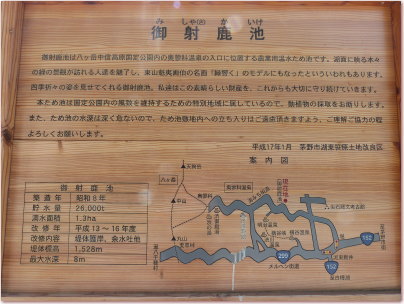 みしゃ(め) か いけ
御射鹿池
御射鹿池は八ヶ岳中信高原国定公園内の奥蓼科温泉の入口に位置する農業用温水ため池です。湖面に映る木々
の緑の景観が訪れる人達を魅了し、東山魁夷画伯の名画「緑響く」のモデルにもなったといういわれもあります。
四季折々の姿を見せてくれる御射鹿池。私達はこの素晴らしい財産を、これからも大切に守り続けていきます。
本ため池は国定公園内の風致を維持するための特別地域に属しているので、動植物の採取をお断りします。
また、ため池の水深は深く危ないので、ため池敷地内への立ち入りはご遠慮頂きますよう、ご理解ご協力の程
よろしくお願いします。
平成17年1月 茅野市湖東笹原土地改良区
案内図
御射鹿池
築造年 昭和8年
貯水量 26,000t
満水面積 1.3ha
改修年 平成13～16年度
改修内容 堤体護岸、余水吐他
堤体標高 1,528m
最大水深 8m
天狗岳
八ヶ岳
中山
丸山
奥蓼科温泉
現在地
明治温泉
横谷峡
横谷温泉
メルヘン街道
299
152
152